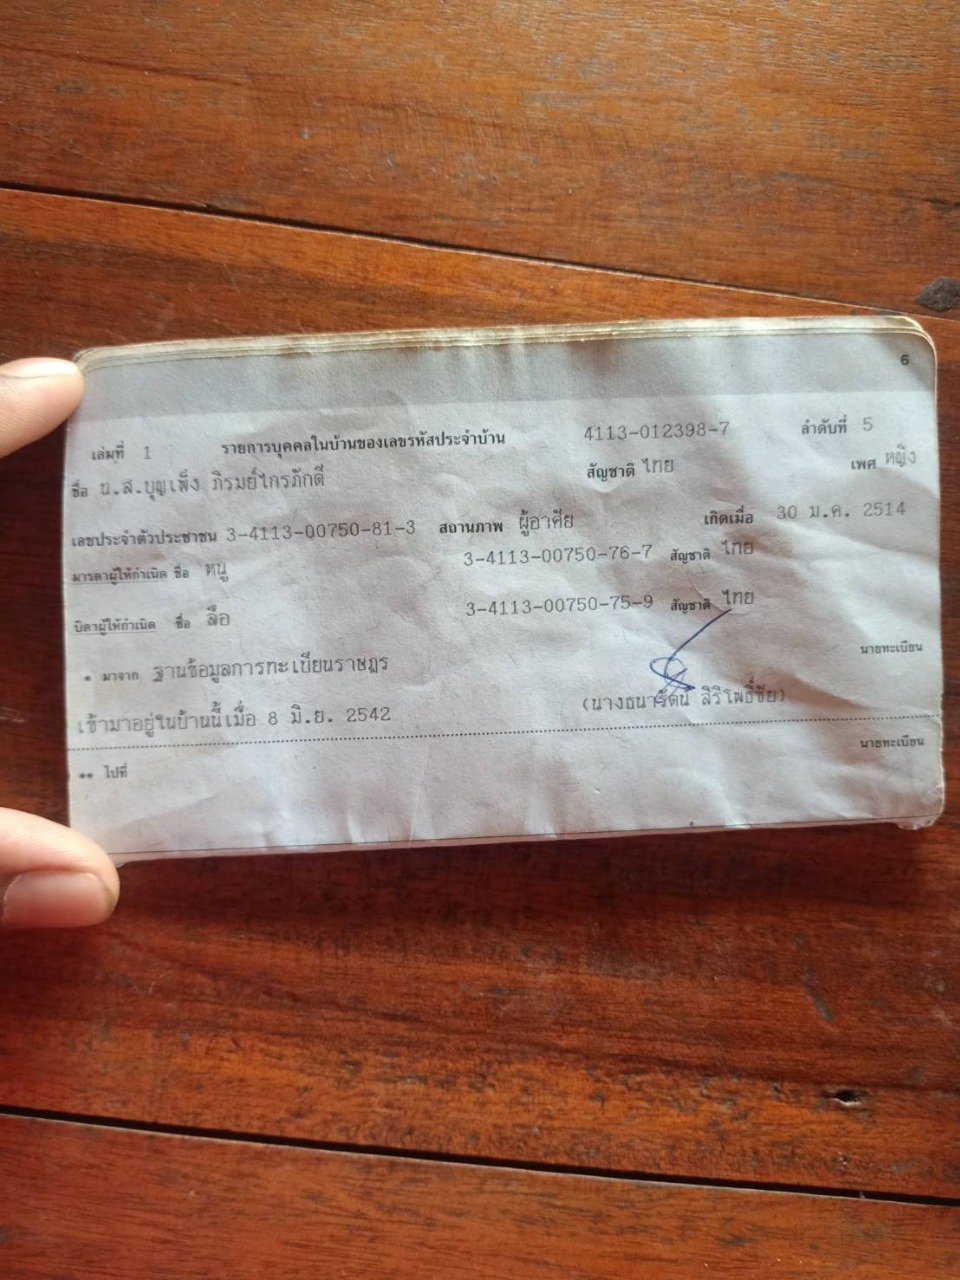 6
เล่มที่ 1 รายการบุคคลในบ้านของเลขรหัสประจำบ้าน 4113-012398-7 ลำดับที่ 5
ชื่อ น.ส.บุญเพ็ง ภิรมย์ไกรภักดี สัญชาติ ไทย เพศ หญิง
เลขประจำตัวประชาชน 3-4113-00750-81-3 สถานภาพ ผู้อาศัย เกิดเมื่อ 30 ม.ค. 2514
มารดาผู้ให้กำเนิด ชื่อ หนู 3-4113-00750-76-7 สัญชาติ ไทย
บิดาผู้ให้กำเนิด ชื่อ ลือ 3-4113-00750-75-9 สัญชาติ ไทย
* มาจาก ฐานข้อมูลการทะเบียนราษฎร นายทะเบียน
เข้ามาอยู่ในบ้านนี้เมื่อ 8 มิ.ย. 2542 (นางธนารัตน์ สิริโพธิ์ชัย)
** ไปที่ นายทะเบียน